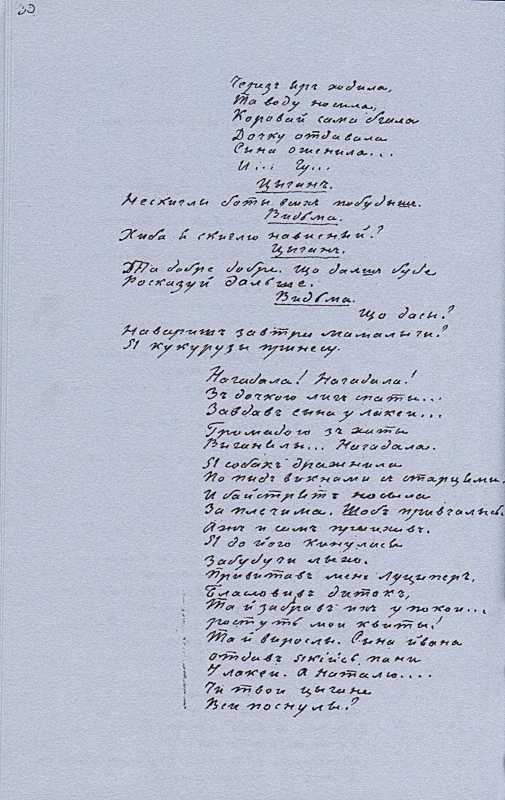 33
Черезъ яръ ходила,
Та воду носыла,
Коровай сама бгала
Дочку отдавала
Сына оженила...
И... Гу...
Цыганъ.
Нескиглы боты всихъ побудышъ.
Видьма.
Хиба я скиглю нависный?
Цыганъ.
Та добре добре. Що дальшъ буде
Росказуй дальше.
Видьма.
Що дасы?
Наваришъ завтра мамалыги?
Я кукурузы принесу.
Нагадала! Нагадала!
Зъ дочкою лигъ спаты...
Завдавъ сына у лакеи...
Громадою зъ хаты
Выганялы... Нагадала.
Я собакъ дражнила
По пидъ викнами зъ старцеми.
И байстрятъ носыла
За плечима. Щобъ привчались.
Ажъ и самъ приихавъ.
Я до його кинулась
Забубучи лыхо.
Привитавъ мене Луциперъ,
Благословивъ дитокъ,
Та й забравъ ихъ у покои...
ростуть мои квиты!
Та й вырослы. Сына Ивана
отдавъ якійсь пани
У лакеи. А наталю....
Чи твои цыгане
Вси поснулы?